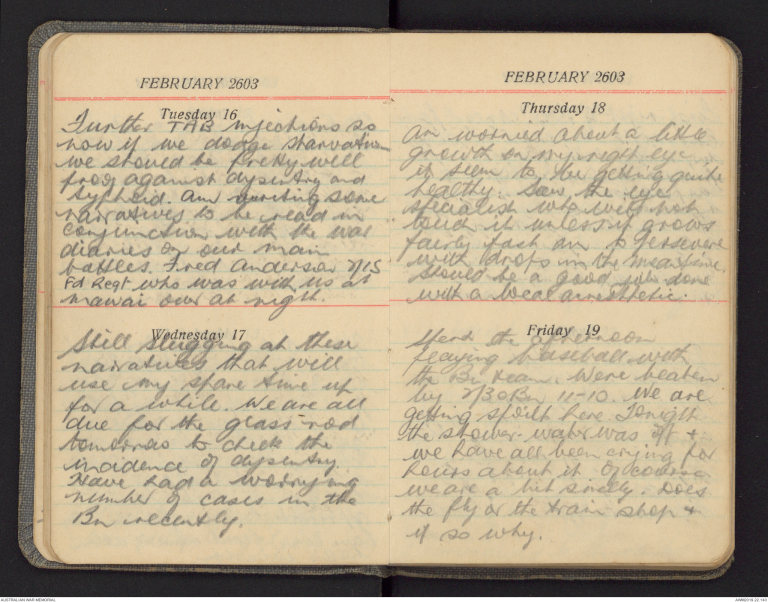 FEBRUARY 2603
Tuesday 16
Further TAB injections so
now if we dodge starvation
we should be pretty well
proof against dysentry and
typhoid. Am writing some
narratives to be read in
conjunction with the war
diaries on our main
battles. Fred Anderson 2/15
Fd Regt who was with us at
mawai over at night.
Wednesday 17
Still slugging at these
narratives that will
use my spare time up
for a while. We are all
due for the glass rod
tomorrow to check the
incidence of dysentry.
Have had a worrying
number of cases in the
Bn recently.
FEBRUARY 2603
Thursday 18
Am worried about a little
growth on my right eye
it seem to be getting quite
healthy. Saw the eye
specialist who will not
touch it unless it grows
fairly fast am to persevere
with drops in the meantime.
Should be a good job done
with a local anaesthetic.
Friday 19
Spent the afternoon
playing baseball with
the Bn team. Were beaten
by 2/30 Bn 11-10. We are
getting spoilt here. Tonight
the shower water was off +
we have all been crying for
hours about it of course
we are a bit smelly. Does
the fly or the train stop +
if so why.
AUSTRALIAN WAR MEMORIAL